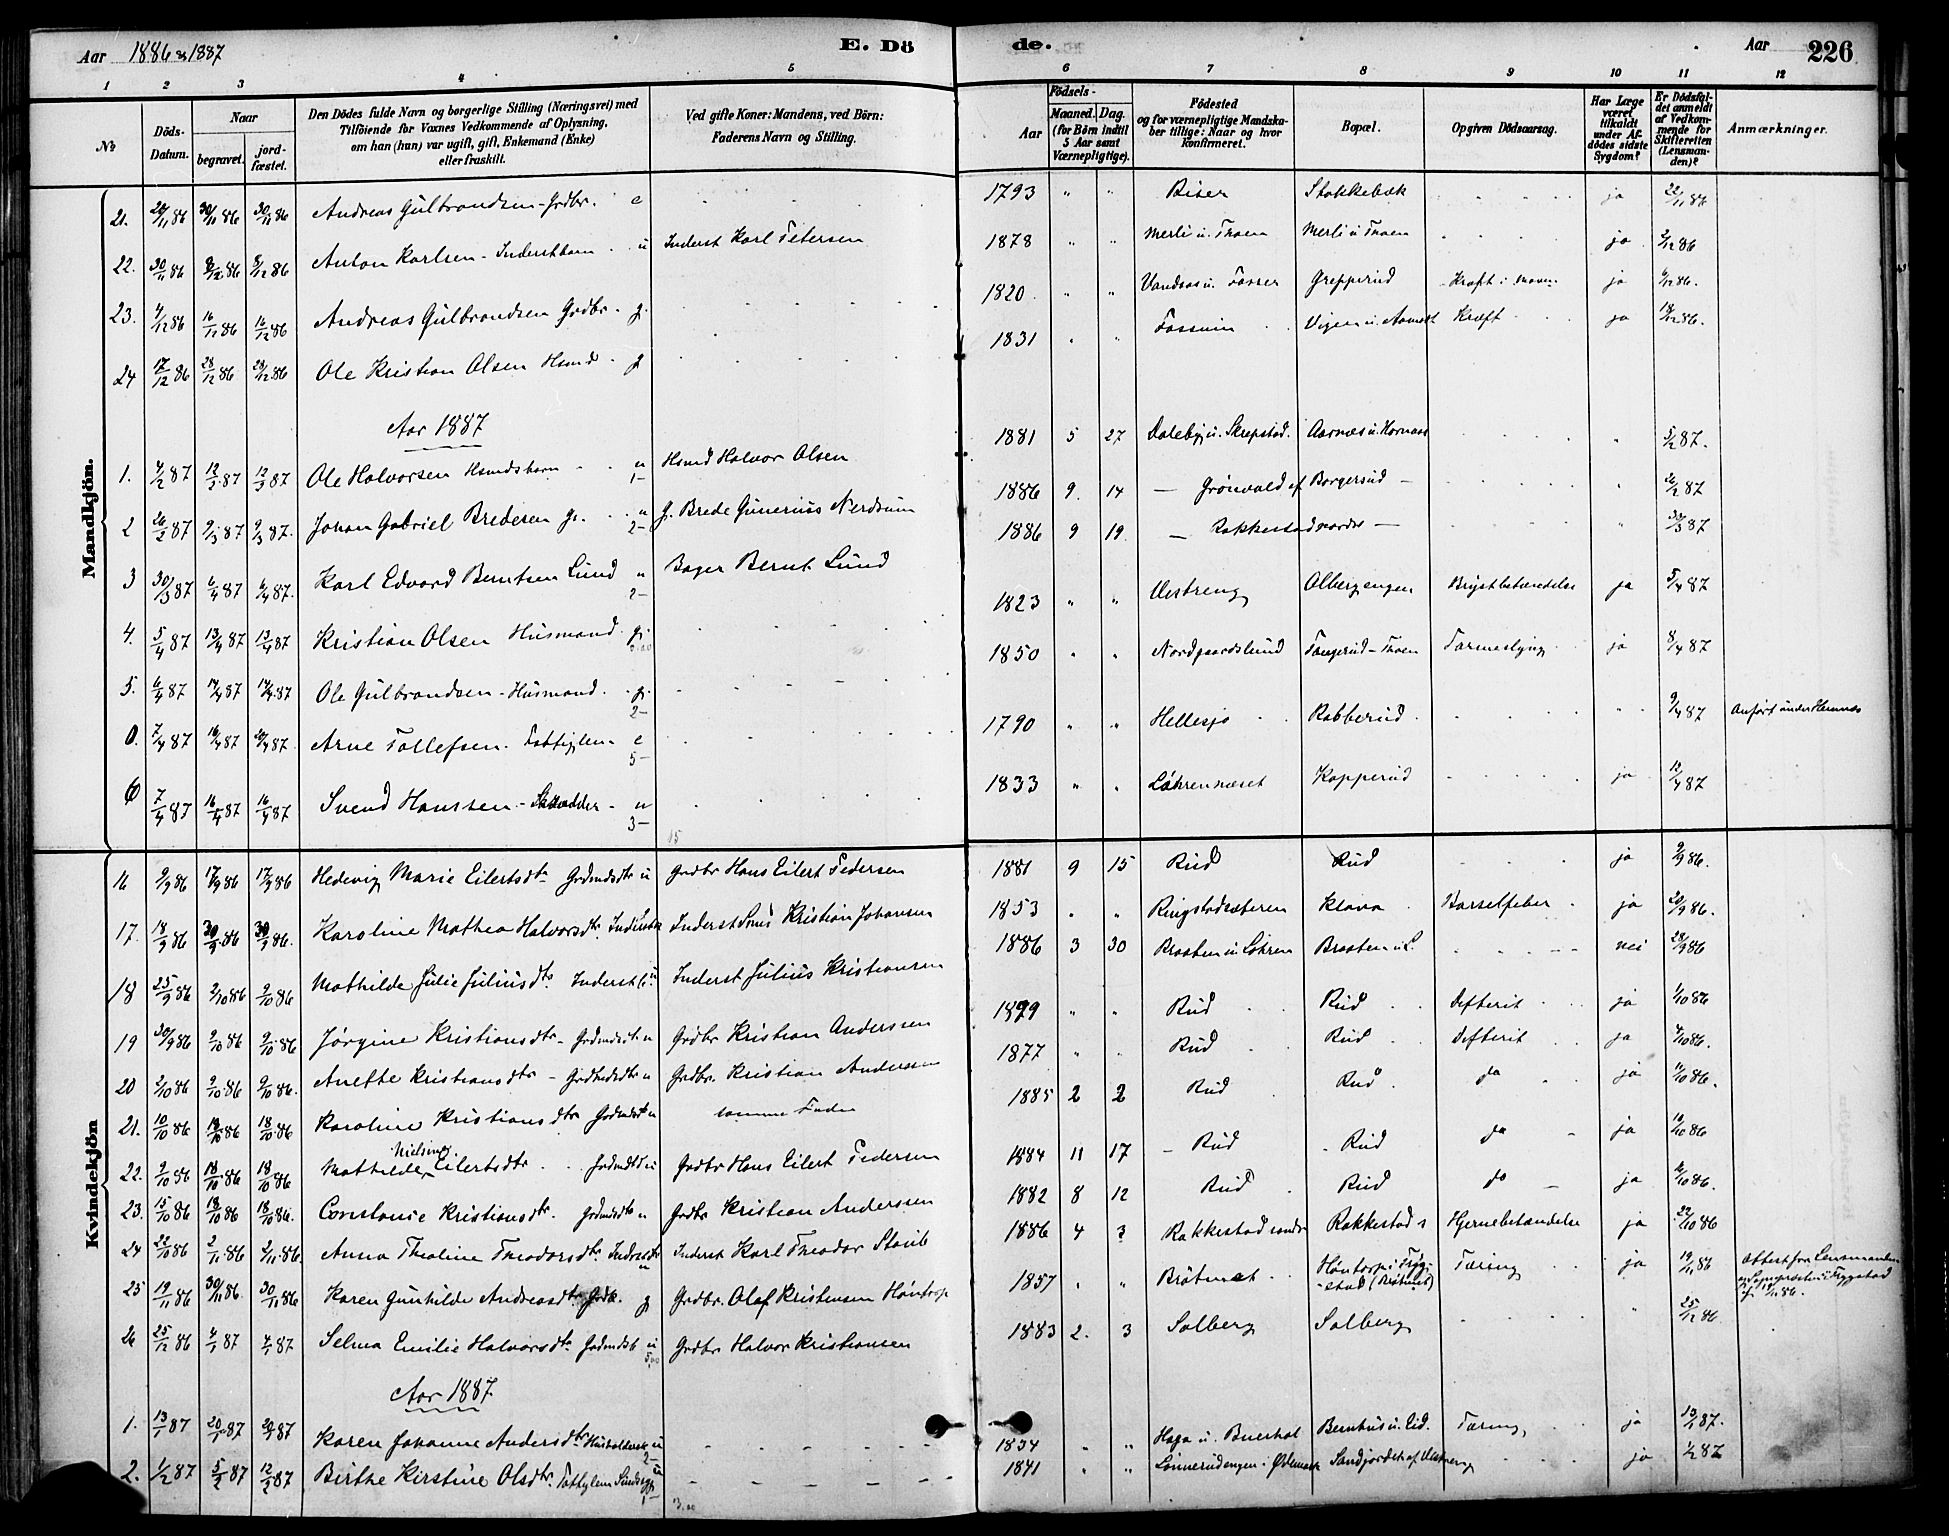 Aar 1886 & 1887 E. Dö
de. Aar 226
1 2 3 4 5 6 7 8 9 10 11 12
No Döds-Datum. Naar begravet. jordfæstet. Den Dödes fulde Navn og borgerlige Stilling (Næringsvei) med Tilföiende for Voxnes Vedkommende af Oplysning, om han (hun) var ugift, gift, Enkemand (Enke) eller fraskilt. Ved gifte Koner: Mandens, ved Börn: Faderens Navn og Stilling. Födsels- Aar Maaned. Dag. (for Börn indtil 5 Aar samt Værnepligtige). Födested og for værnepligtige Mandskaber tillige: Naar og hvor konfirmeret. Bopæl. Opgiven Dödsaarsag. Har Læge været tilkaldt under Afdödes sidste Sygdom? Er Dödsfaldet anmeldt af Vedkommende for Skifteretten (Lensmanden)? Anmærkninger.
Mandkjön.
21. 24/11 86 30/11 86 30/11 86 Andreas Gulbrandsen Grdbr. e 1793 " " Biser Stokkebæk ja 22/11 86
22. 30/11 86 8/12 86 8/12 86 Anton Karlsen - Inderstbarn u Inderst Karl Petersen 1878 " " Merli u. Thoen Merli u Thoen ja 2/12 86
23. 4/12 86 16/11 86 16/12 86 Andreas Gulbrandsen Grdbr. g. 1820 " " Vandsos u. Fosser Grepperud Kræft i maven ja 6/12 86.
24 17/12 86 28/12 86 28/12 86 Ole Kristian Olsen Hsmd g 1831 " " Fossum Vigen u. Kræft ja 18/12 86.
Aar 1887
1. 4/2 87 12/3 87 12/3 87 Ole Halvorsen Hsmdsbarn u 1- Hsmd Halvor Olsen 1881 5 27 Daleby u. Skrepstad. Aarnæs u. Hornæs " 5/2 87.
2 26/2 87 9/3 87 9/3 87. Johan Gabriel Bredesen g. u 2- g. Brede Gunerius Nerdrum 1886 9. 14 — Grönvold af Borgersud — " 26/2 87
3 30/3 87 6/4 87 6/4 87. Karl Edvard Berntsen Lund " 2- Bager Bernt Lund 1886 9 19. — Rakkestad nordre — " 30/3 87
4. 5/4 87 13/4 87 13/4 87 Kristian Olsen Husmand g. 1823 " " Vestreng Olbergengen Brystbetændelse ja 5/4 87
5. 6/4 87 14/4 87 14/4 87 Ole Gulbrandsen - Husmand. g. 2- 1850 " " Nordgaardslund Tangerud - Thoen Tarmeslyng ja 8/4 87
0. 7/4 87 16/4 87 20/4 87. Arne Tollefsen. Fattiglem e 5- 1790 " " Hellesjo Rabberud " 9/4 87 Anfört under Hemnæs
6 7/4 87 16/4 87 16/4 87 Svend Hanssen - Skrædder u 3- 1833 " " Löhrennæset Kopperud ja 13/4 87
15
Kvindekjön
16 9/9 86 17/9 86 17/9 86 Hedevig Marie Eilertsdtr Grdmdsdtr u Grdbr Hans Eilert Pedersen 1881 9 15 Rud Rud ja 9/9 86.
17. 18/9 86 30/9 86 30/9 86. Karoline Mathea Halvorsdtr. Inderst Inderst Kristian Johansen 1853 " " Ringstadsæteren Klova Barselfeber ja 20/9 86.
18 25/9 86 2/10 86 2/10 86 Mathilde Julie Juliusdtr Inderstb. u Inderst Julius Kristiansen 1886 3 30 Braaten u Löhren Braaten u L nei 28/9 86
19 30/9 86 9/10 86 9/10 86 Jörgine Kristiansdtr - Grdmdsdtr u Grdbr Kristian Anderssen 1879 " " Rud Rud Difterit ja 1/10 86
20 2/10 86 9/10 86 9/10 86. Anette Kristiansdtr - Grdmdsdtr u Grdbr. Kristian Andersen 1877 " " Rud Rud Difterit ja 4/10 86.
21. 10/10 86 18/10 86 18/10 86 Karoline Kristiansdtr Grdmdsdtr u samme Fader 1885 2 2 Rud Rud do ja 11/10 86.
22. 9/10 86 18/10 86 18/10 86 Mathilde Nielsine Eilertsdtr. Grdmdsdtr u Grdbr Hans Eilert Pedersen 1884 11 17 - Rud - Rud do ja 10/10 86
23. 15/10 86 18/10 86 18/10 86. Constanse Kristiansdtr. Grdmdsdtr u Grdbr Kristian Anderssen 1882 8 12 Rud Rud do ja 16/10 86.
24 22/10 86 2/11 86 2/11 86. Anna Theoline Theodorsdtr Inderst u Inderst Karl Theodor Staib 1886 4 3 Rakkestad søndr Rakkestad s Hjernebetændelse ja 22/10 86
25 19/11 86 30/11 86. 30/11 86 Karen Gunhilde Andreasdtr Grdk. g Grdbr. Olaf Kristiansen Höntorp 1857 " " Brötmet Höntorp i Trygstad Tæring ja 19/11 86 Attest fra Lensmanden og Sognepresten i Trygstad
26 25/12 86 4/1 87 4/1 87 Selma Emilie Halvorsdtr Grdmdsb u 5,00 Grdbr Halvor Kristiansen 1883 2. 3 Solberg Solberg " 25/12 86
Aar 1887
1. 13/1 87 20/1 87 20/1 87 Karen Johanne Andersdtr Husholderske u 2- 1834 " " Haga u. Buerhol Bernhus u. Eid. Tæring ja 13/1 87.
2. 1/2 87 5/2 87 12/2 87 Birthe Kirstine Olsdtr. Fattiglem u 1- 1841 " " Lonnerudengen i Ødemark Sandjordet af Vestreng ja 1/2 87
3,00